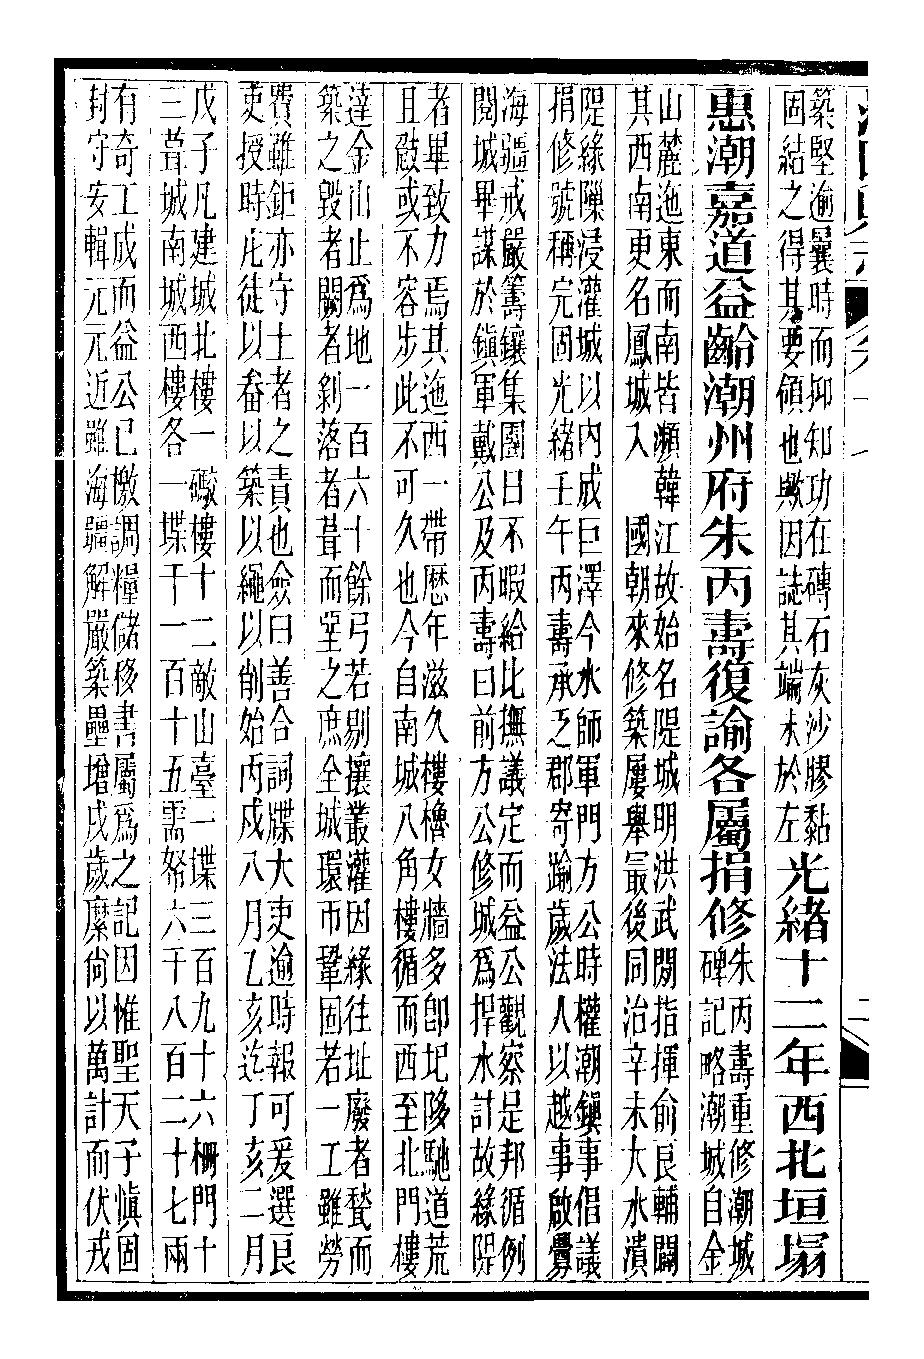 築堅逾曩時而抑知功在磚石灰沙膠黏
固結之得其要領也歟因誌其端末於左
光緒十二年西北垣塌
惠潮嘉道益齡潮州府朱丙壽復諭各屬捐修
朱丙壽重修潮城
碑記略潮城自金
山麓迤東而南皆瀕韓江故始名隄城明洪武間指揮俞良輔闢
其西南更名鳳城入　國朝來修築屢舉最後同治辛未大水潰
隄緣隙浸灌城以內成巨澤今水師軍門方公時權潮鎮事倡議
捐修號稱完固光緒壬午丙壽承乏郡寄踰歲法人以越事啟釁
海疆戒嚴籌鑲集團日不暇給比撫議定而益公觀察足邦循例
閱城畢謀於鎮軍戴公及丙壽曰前方公修城爲捍水計故緣隄
者畢致力焉其迤西一帶歷年滋久樓櫓女牆多卽圮陊馳道荒
且攲或不容步此不可久也今自南城八角樓循而西至北門樓
達金山止爲地一百六十餘弓若剔攘叢灌因緣往址廢者甃而
築之毀者闕者剝落者葺而堊之庶全城環帀鞏固若一工雖勞
費雖鉅亦守土者之責也僉曰善合詞牒大吏逾時報可爰選良
吏授時庀徒以畚以築以繩以削始丙戌八月乙亥迄丁亥二月
戊子凡建城北樓一礮樓十二敵山臺一堞三百九十六柵門十
三葺城南城西樓各一堞千一百十五需帑六千八百二十七兩
有奇工成而益公已檄調糧儲移書屬爲之記因惟聖天子愼固
封守安輯元元近雖海疆解嚴築壘增戍歲縻尚以萬計而伏戎